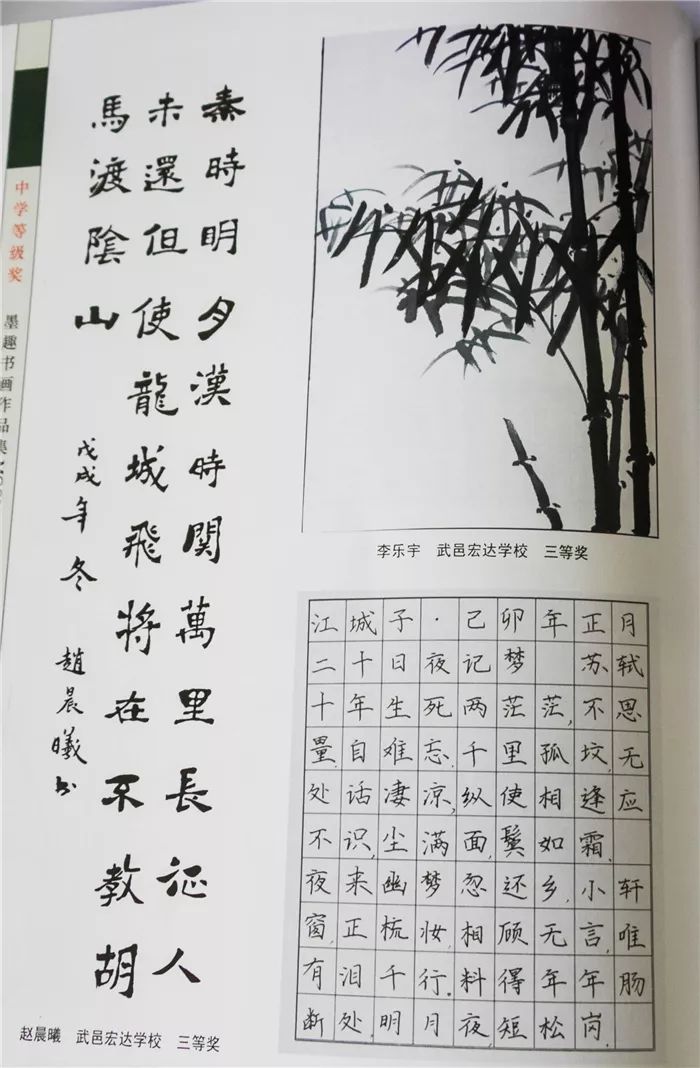 中学等级奖
墨趣书画作品集
秦時明月漢時関萬里長征人
未還但使龍城飛將在不教胡
馬渡陰山
戊戌年冬 趙晨曦书
赵晨曦 武邑宏达学校 三等奖
李乐宇 武邑宏达学校 三等奖
江城子·己卯年正月
二十日夜记梦 苏轼
十年生死两茫茫,不思
量.自难忘.千里孤坟,无
处话凄凉,纵使相逢应
不识,尘满面,鬓如霜.
夜来幽梦忽还乡,小轩
窗,正梳妆.相顾无言,唯
有泪千行.料得年年肠
断处,明月夜,短松岗.